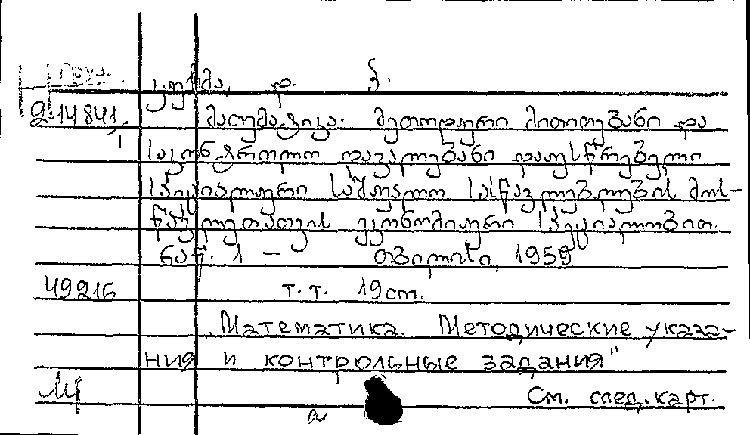 Груз.
კურმა, დ. ვ.
2.14841 მათემატიკა. მეთოდური მითითებანი და
1
საკონტროლო დავალებანი დაუსწრებელი
სპეციალური საშუალო სასწავლებლების მოს-
წავლეთათვის ეკონომიკური სპეციალობით.
ნაწ. 1 - თბილისი, 1959
49216 т.т. 19 ст.
„Математика. Методические указа-
ния и контрольные задания"
См. след. карт.